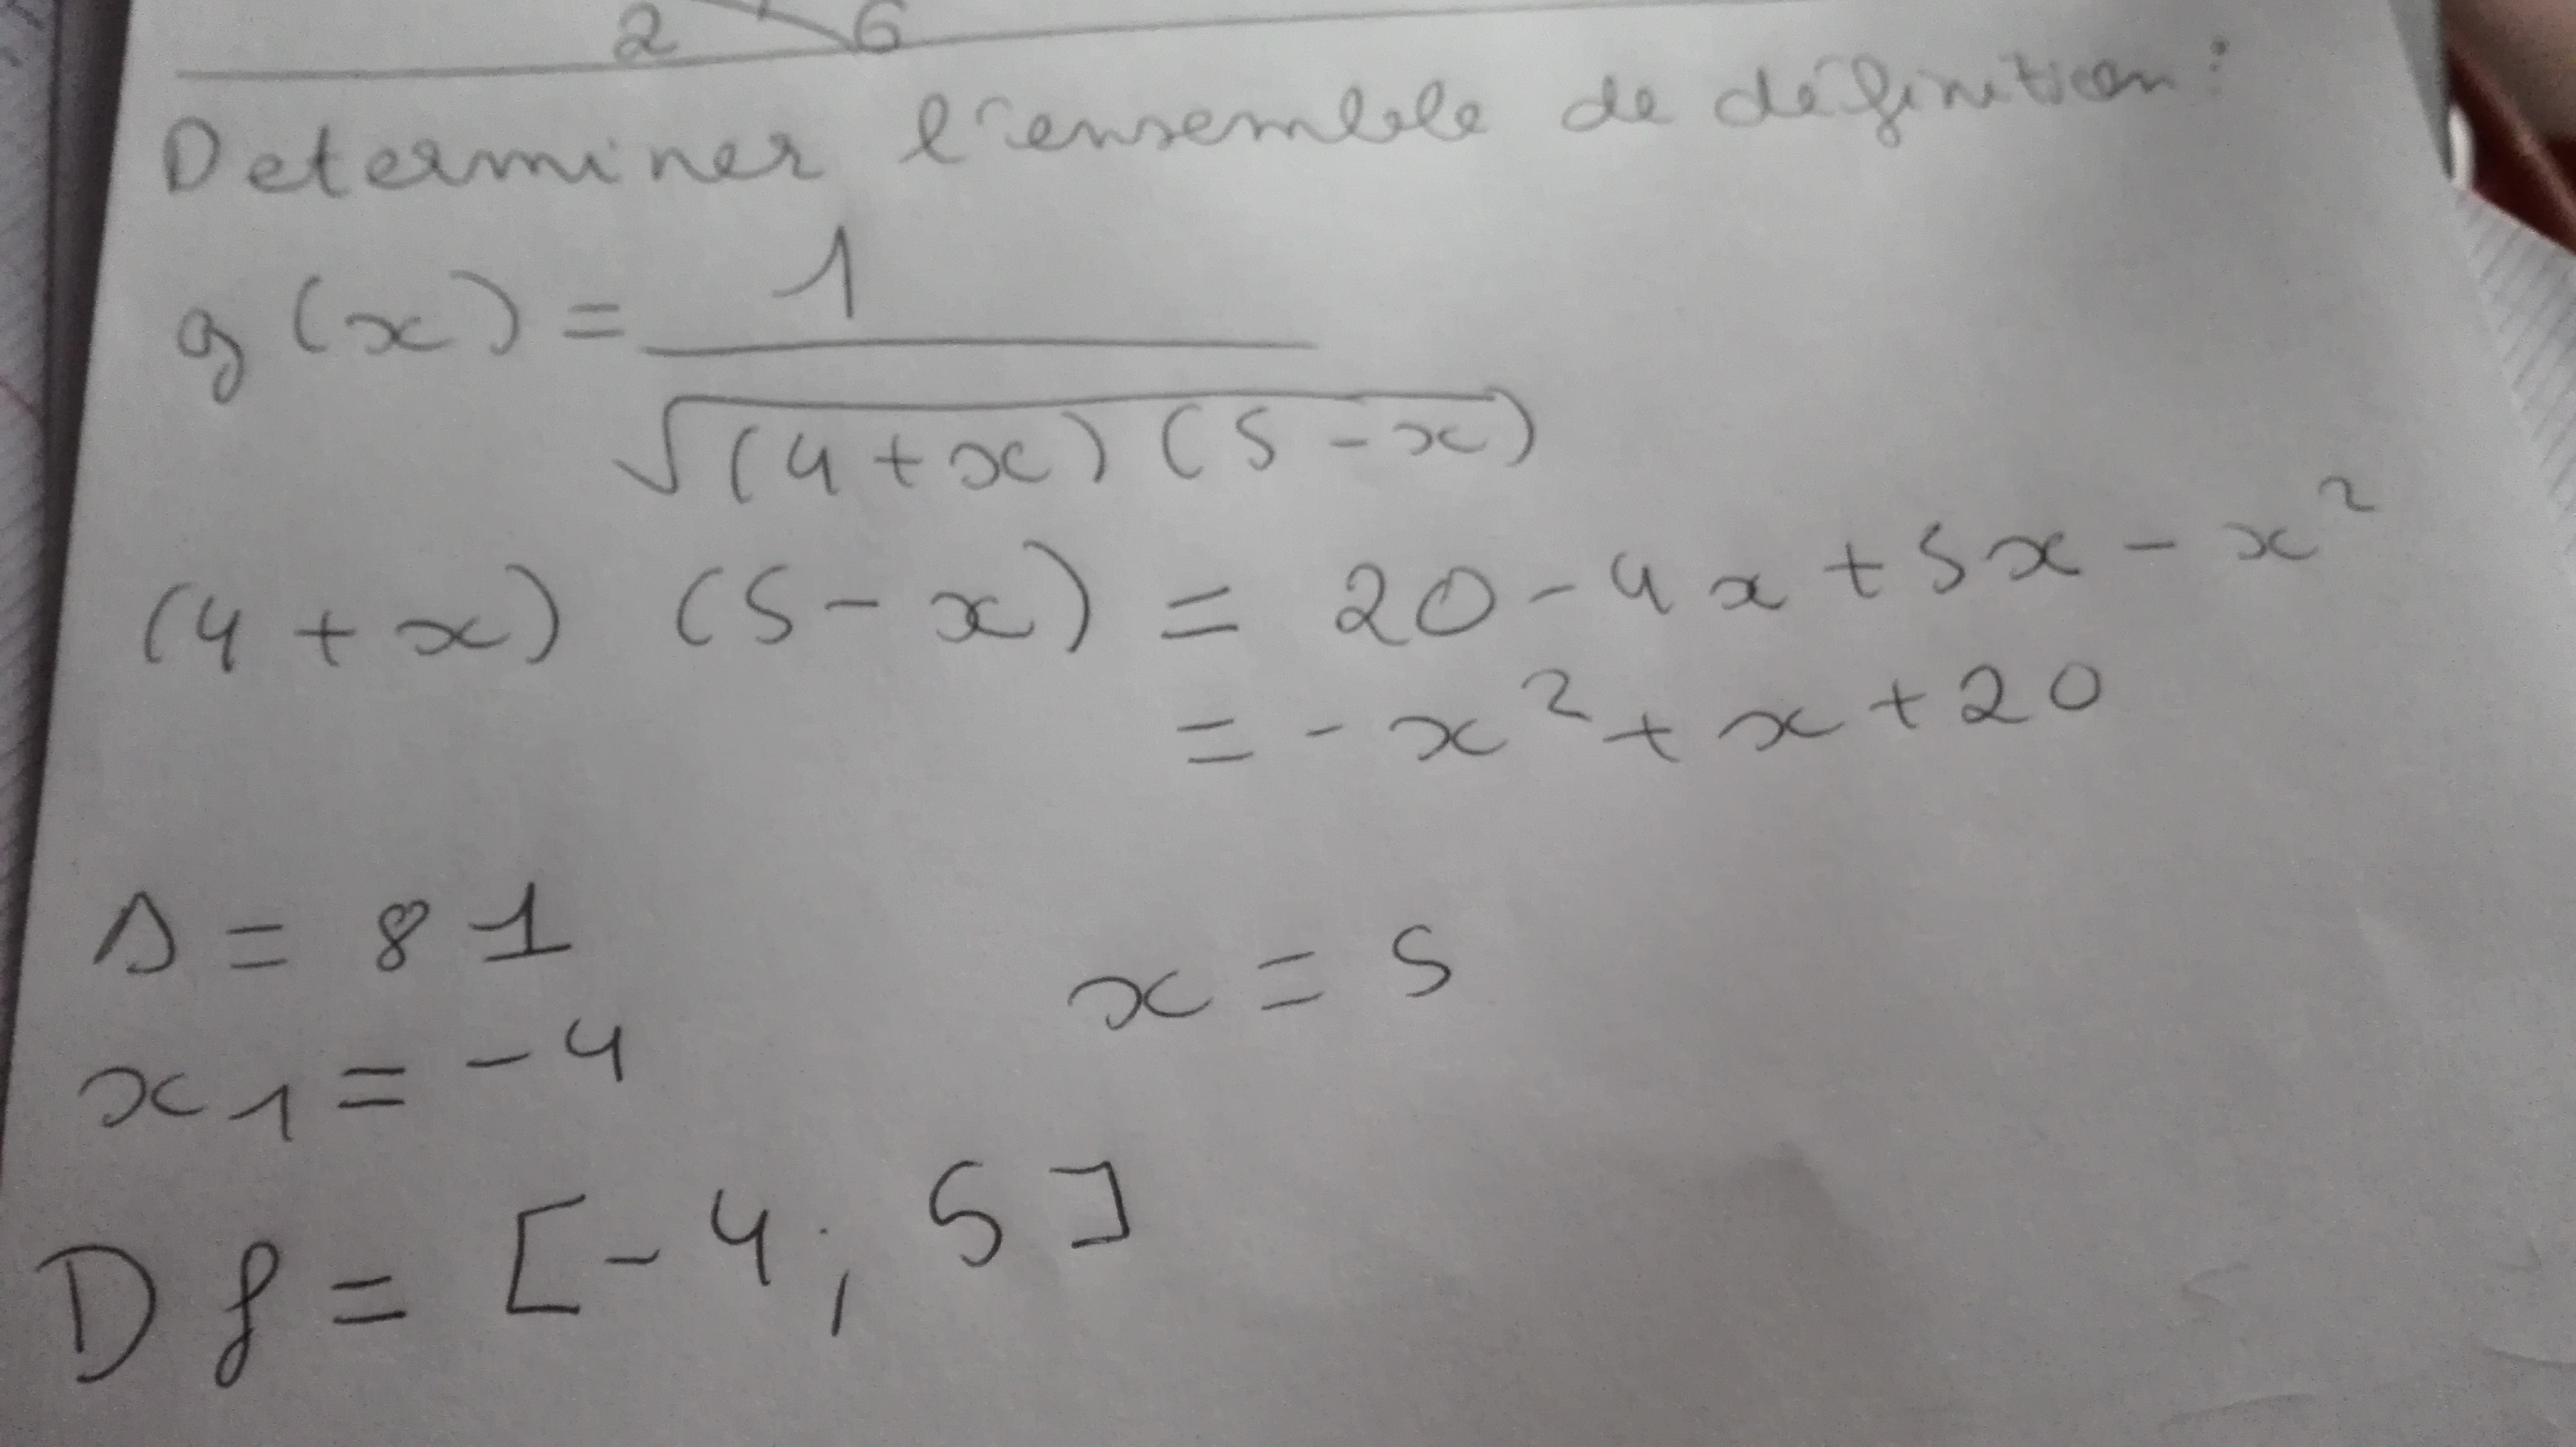 2 6
Determiner l'ensemble de définition :
g(x) = 1
√(4+x)(5-x)
(4+x) (5-x) = 20-4x+5x-x²
= -x²+x+20
Δ = 81
x = 5
x1 = -4
Df = [-4; 5]